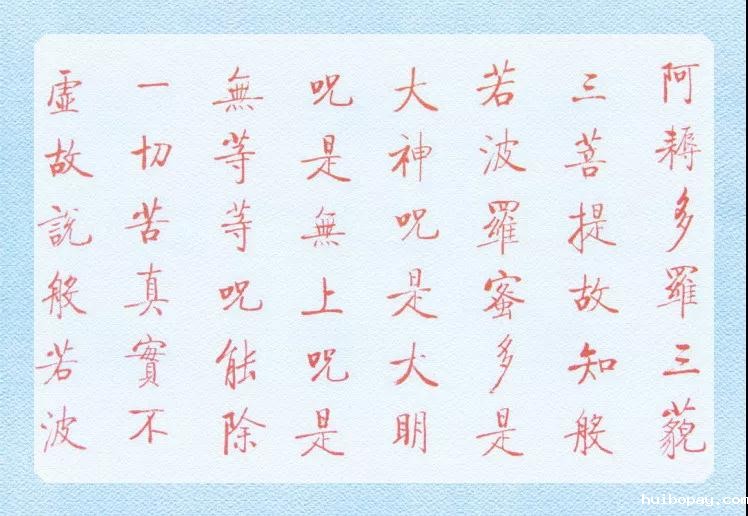 阿耨多羅三藐
三菩提故知般
若波羅蜜多是
大神呪是大明
呪是無上呪是
無等等呪能除
一切苦真實不
虛故說般若波
huibopay.com